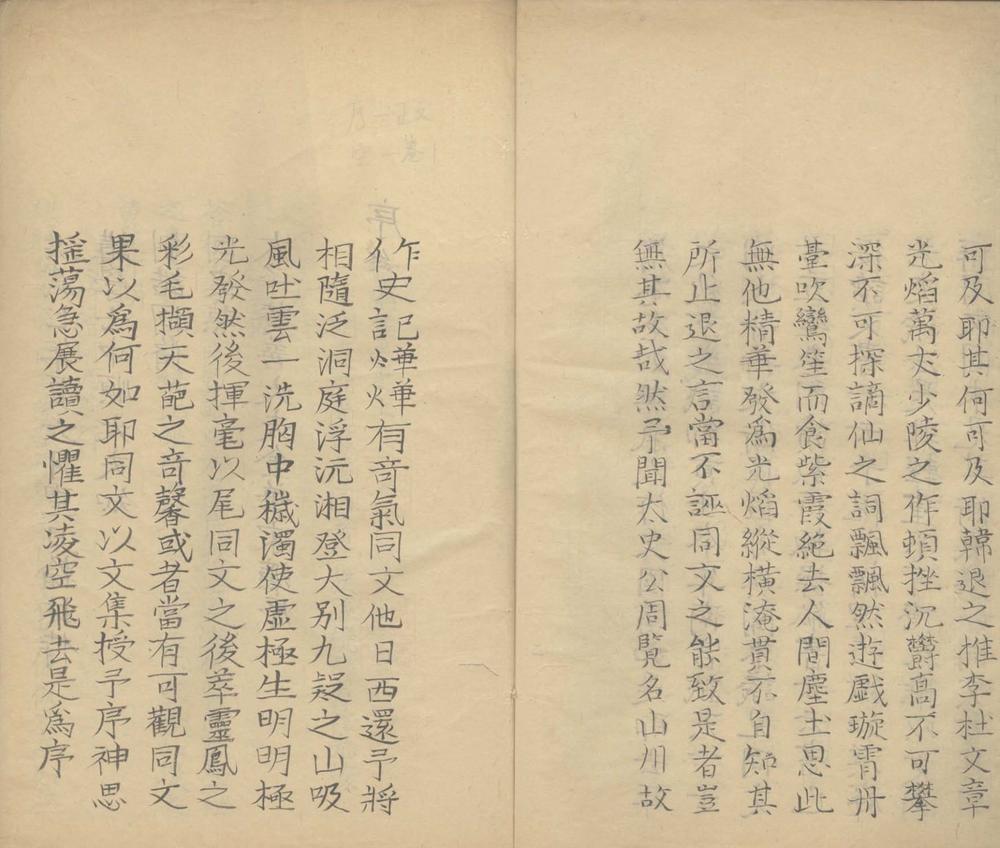 可及耶其何可及耶韓退之推李杜文章
光焰萬丈少陵之作頓挫沉鬱高不可攀
深不可探謫仙之詞飄飄然遊戯璇霄丹
臺吹鸞笙而食紫霞絶去人間塵土思此
無他精華發爲光焰縱横淹貫不自知其
所止退之言當不誣同文之能致是者豈
無其故哉然予聞太史公周覽名山川故
作史記燁燁有竒氣同文他日西還予將
相隨泛洞庭浮沅湘登大别九疑之山吸
風吐雲一洗胸中穢濁使虚極生明明極
光發然後揮毫以尾同文之後萃靈鳳之
彩毛擷天葩之竒馨或者當有可觀同文
果以爲何如耶同文以文集授予序神思
摇蕩急展讀之懼其凌空飛去是爲序